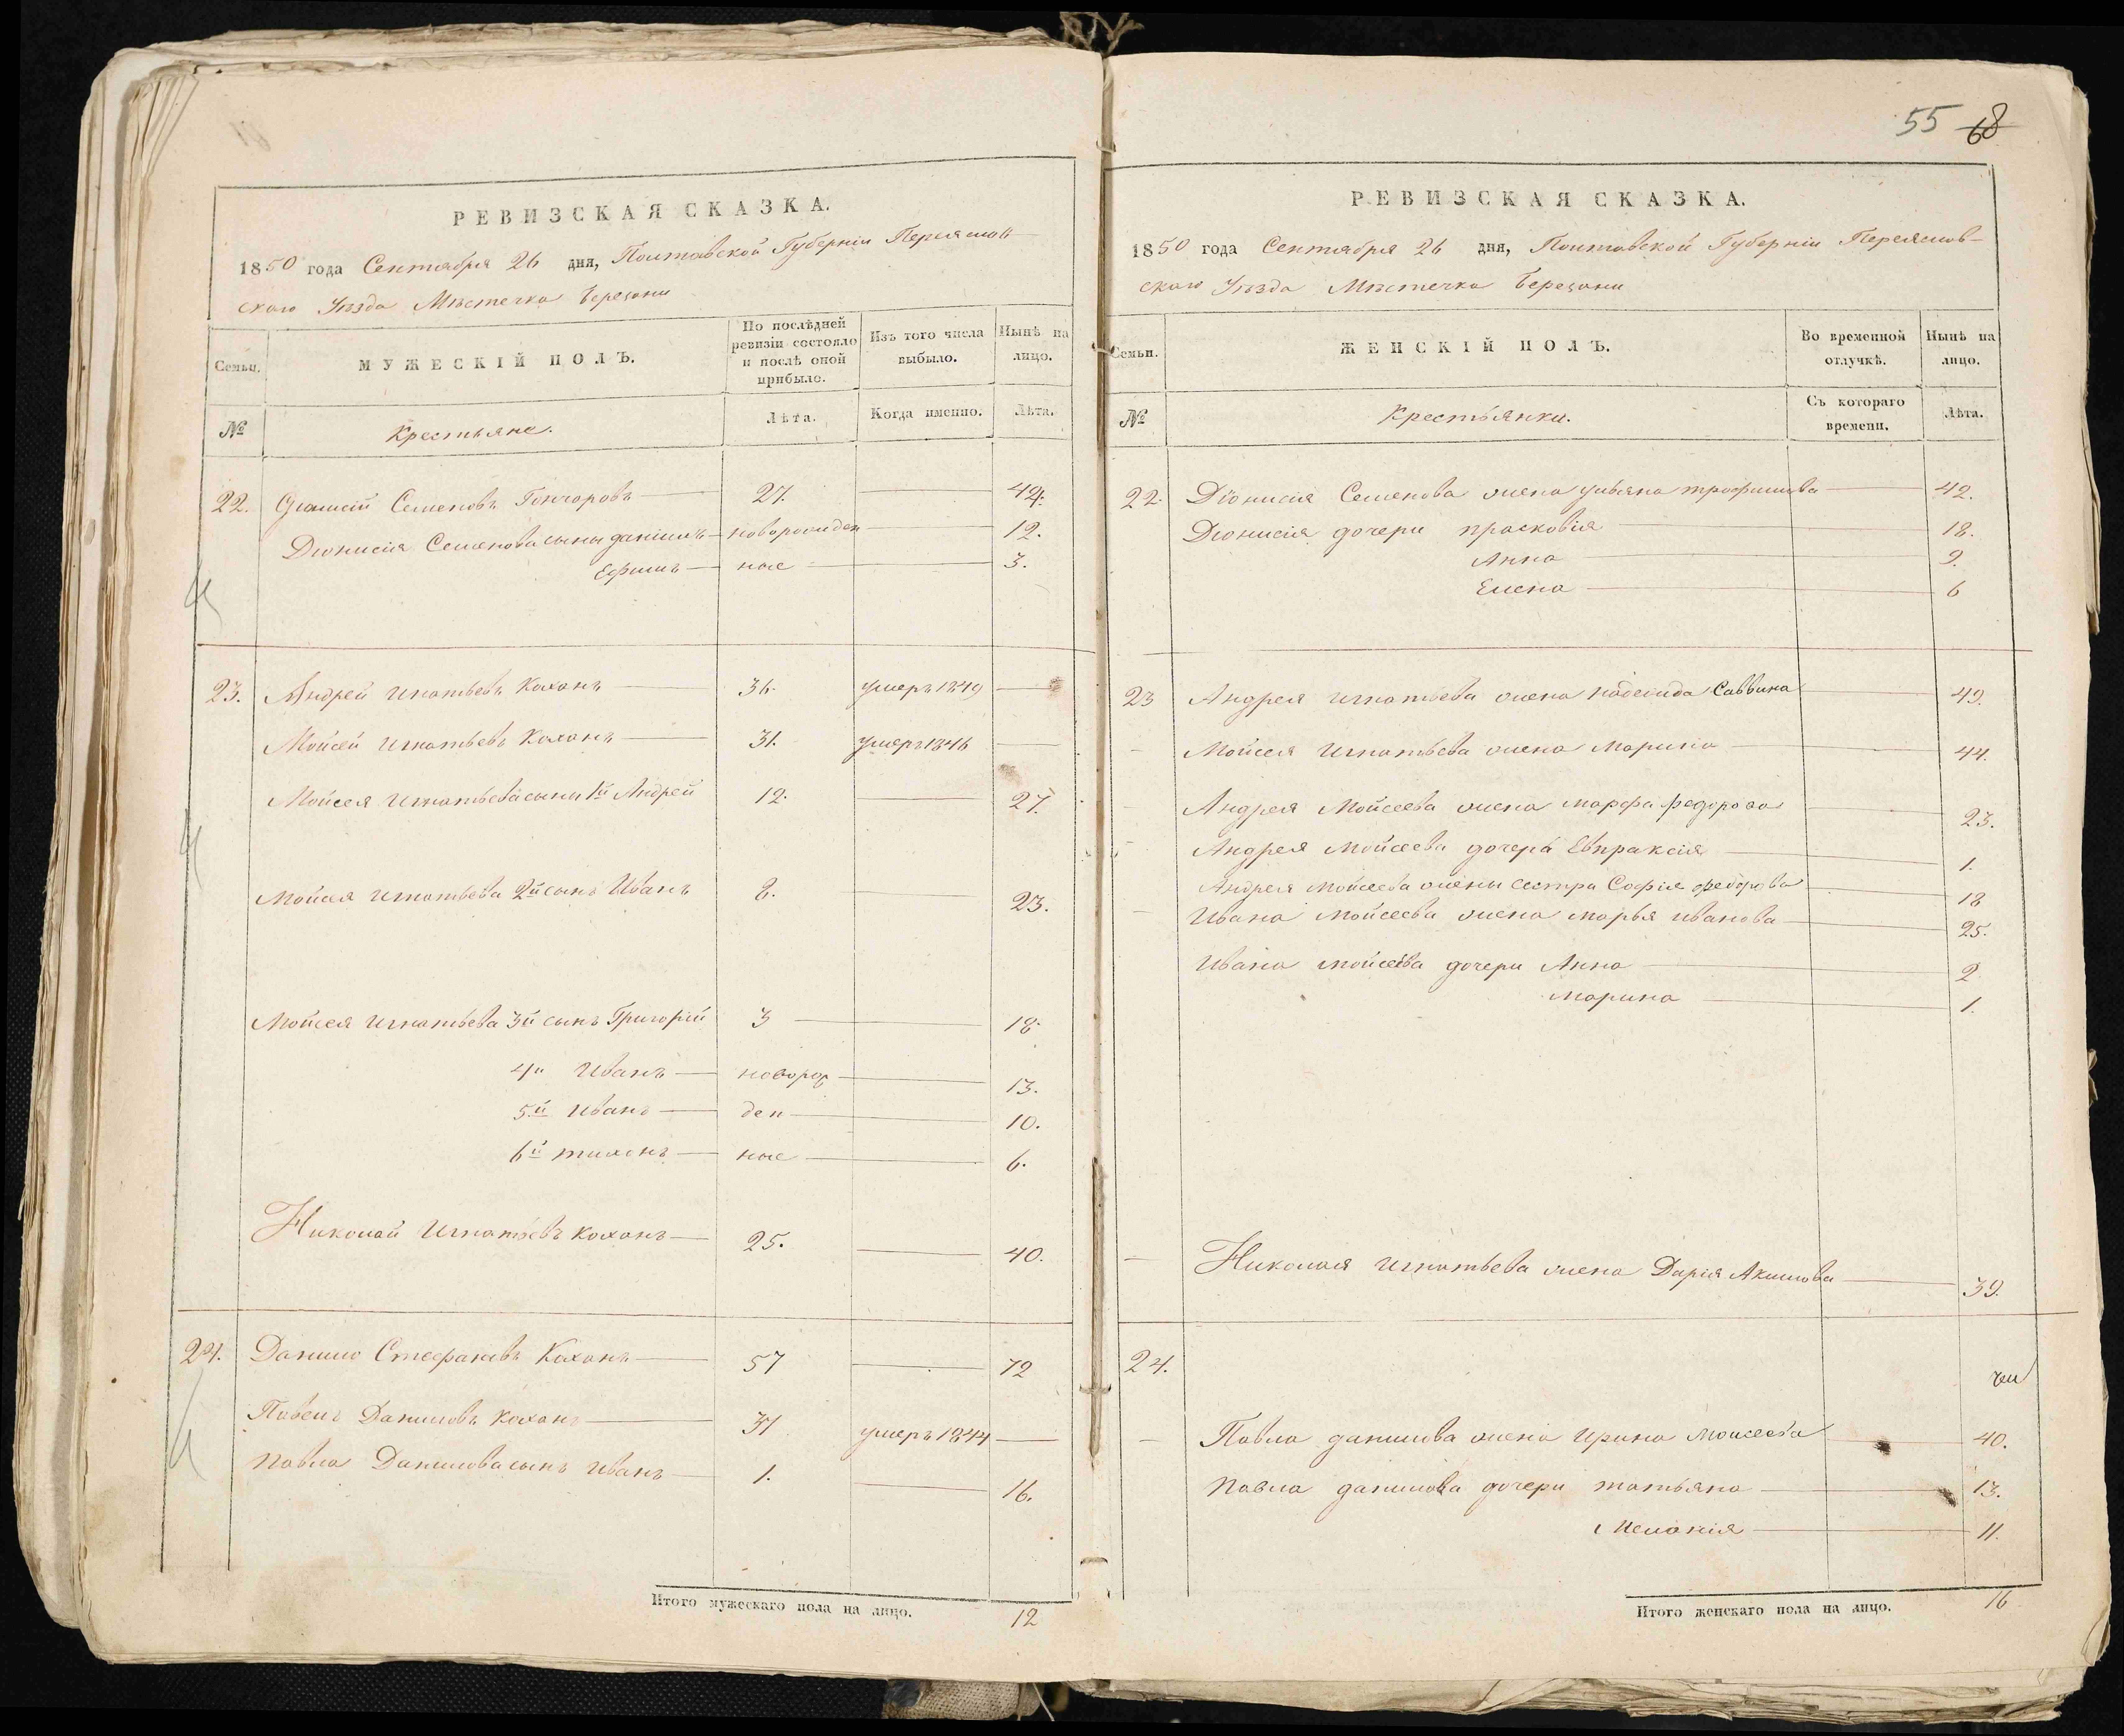 РЕВИЗСКАЯ СКАЗКА.
1850 года Сентября 26 дня, Полтавской Губерніи Переяслов-
скаго Уѣзда Мѣстечка Березани
Семьи.
МУЖЕСКІЙ ПОЛЪ.
По послѣдней ревизіи состояло и послѣ оной прибыло.
Изъ того числа выбыло.
Нынѣ на лицо.
№
Крестьяне.
Лѣта.
Когда именно.
Лѣта.
22. Діонисій Семеновъ Гончаровъ 27. 42.
Діонисія Семенова сыны Даніилъ новорожден 12.
Ефимъ ные 3.
23. Андрей Игнатьевъ Каханъ 36. умеръ 1849
Мойсей Игнатьевъ Каханъ 31. умеръ 1846
Мойсея Игнатьева сыны 1й Андрей 12. 27.
Мойсея Игнатьева 2й сынъ Иванъ 8. 23.
Мойсея Игнатьева 3й сынъ Григорій 3 18.
4й Иванъ новорож 13.
5й Иванъ ден 10.
6й Тихонъ ные 6.
Николай Игнатьевъ Каханъ 25. 40.
24. Данило Стефановъ Каханъ 57 72
Павелъ Даниловъ Каханъ 31 умеръ 1844
Павла Данилова сынъ Иванъ 1. 16.
Итого мужескаго пола на лицо. 12
55 68
РЕВИЗСКАЯ СКАЗКА.
1850 года Сентября 26 дня, Полтавской Губерніи Переяслов-
скаго Уѣзда Мѣстечка Березани
Семьи.
ЖЕНСКІЙ ПОЛЪ.
Во временной отлучкѣ.
Нынѣ на лицо.
№
Крестьянки.
Съ котораго времени.
Лѣта.
22. Діонисія Семенова жена Ульяна Трофимова 42.
Діонисія дочери Прасковія 18.
Анна 9.
Елена 6
23 Андрея Игнатьева жена Надежда Саввина 49.
Мойсея Игнатьева жена Марина 44.
Андрея Мойсеева жена Марфа Федорова 23.
Андрея Мойсеева дочерь Евпраксія 1.
Андрея Мойсеева жены сестра Софія Федорова 18
Ивана Мойсеева жена Марья Иванова 25.
Ивана Мойсеева дочери Анна 2
Марина 1.
Николая Игнатьева жена Дарія Акимова 39.
24.
Павла Данилова жена Ирина Моисеева 40.
Павла Данилова дочери Татьяна 13.
Меланія 11.
Итого женскаго пола на лицо. 16